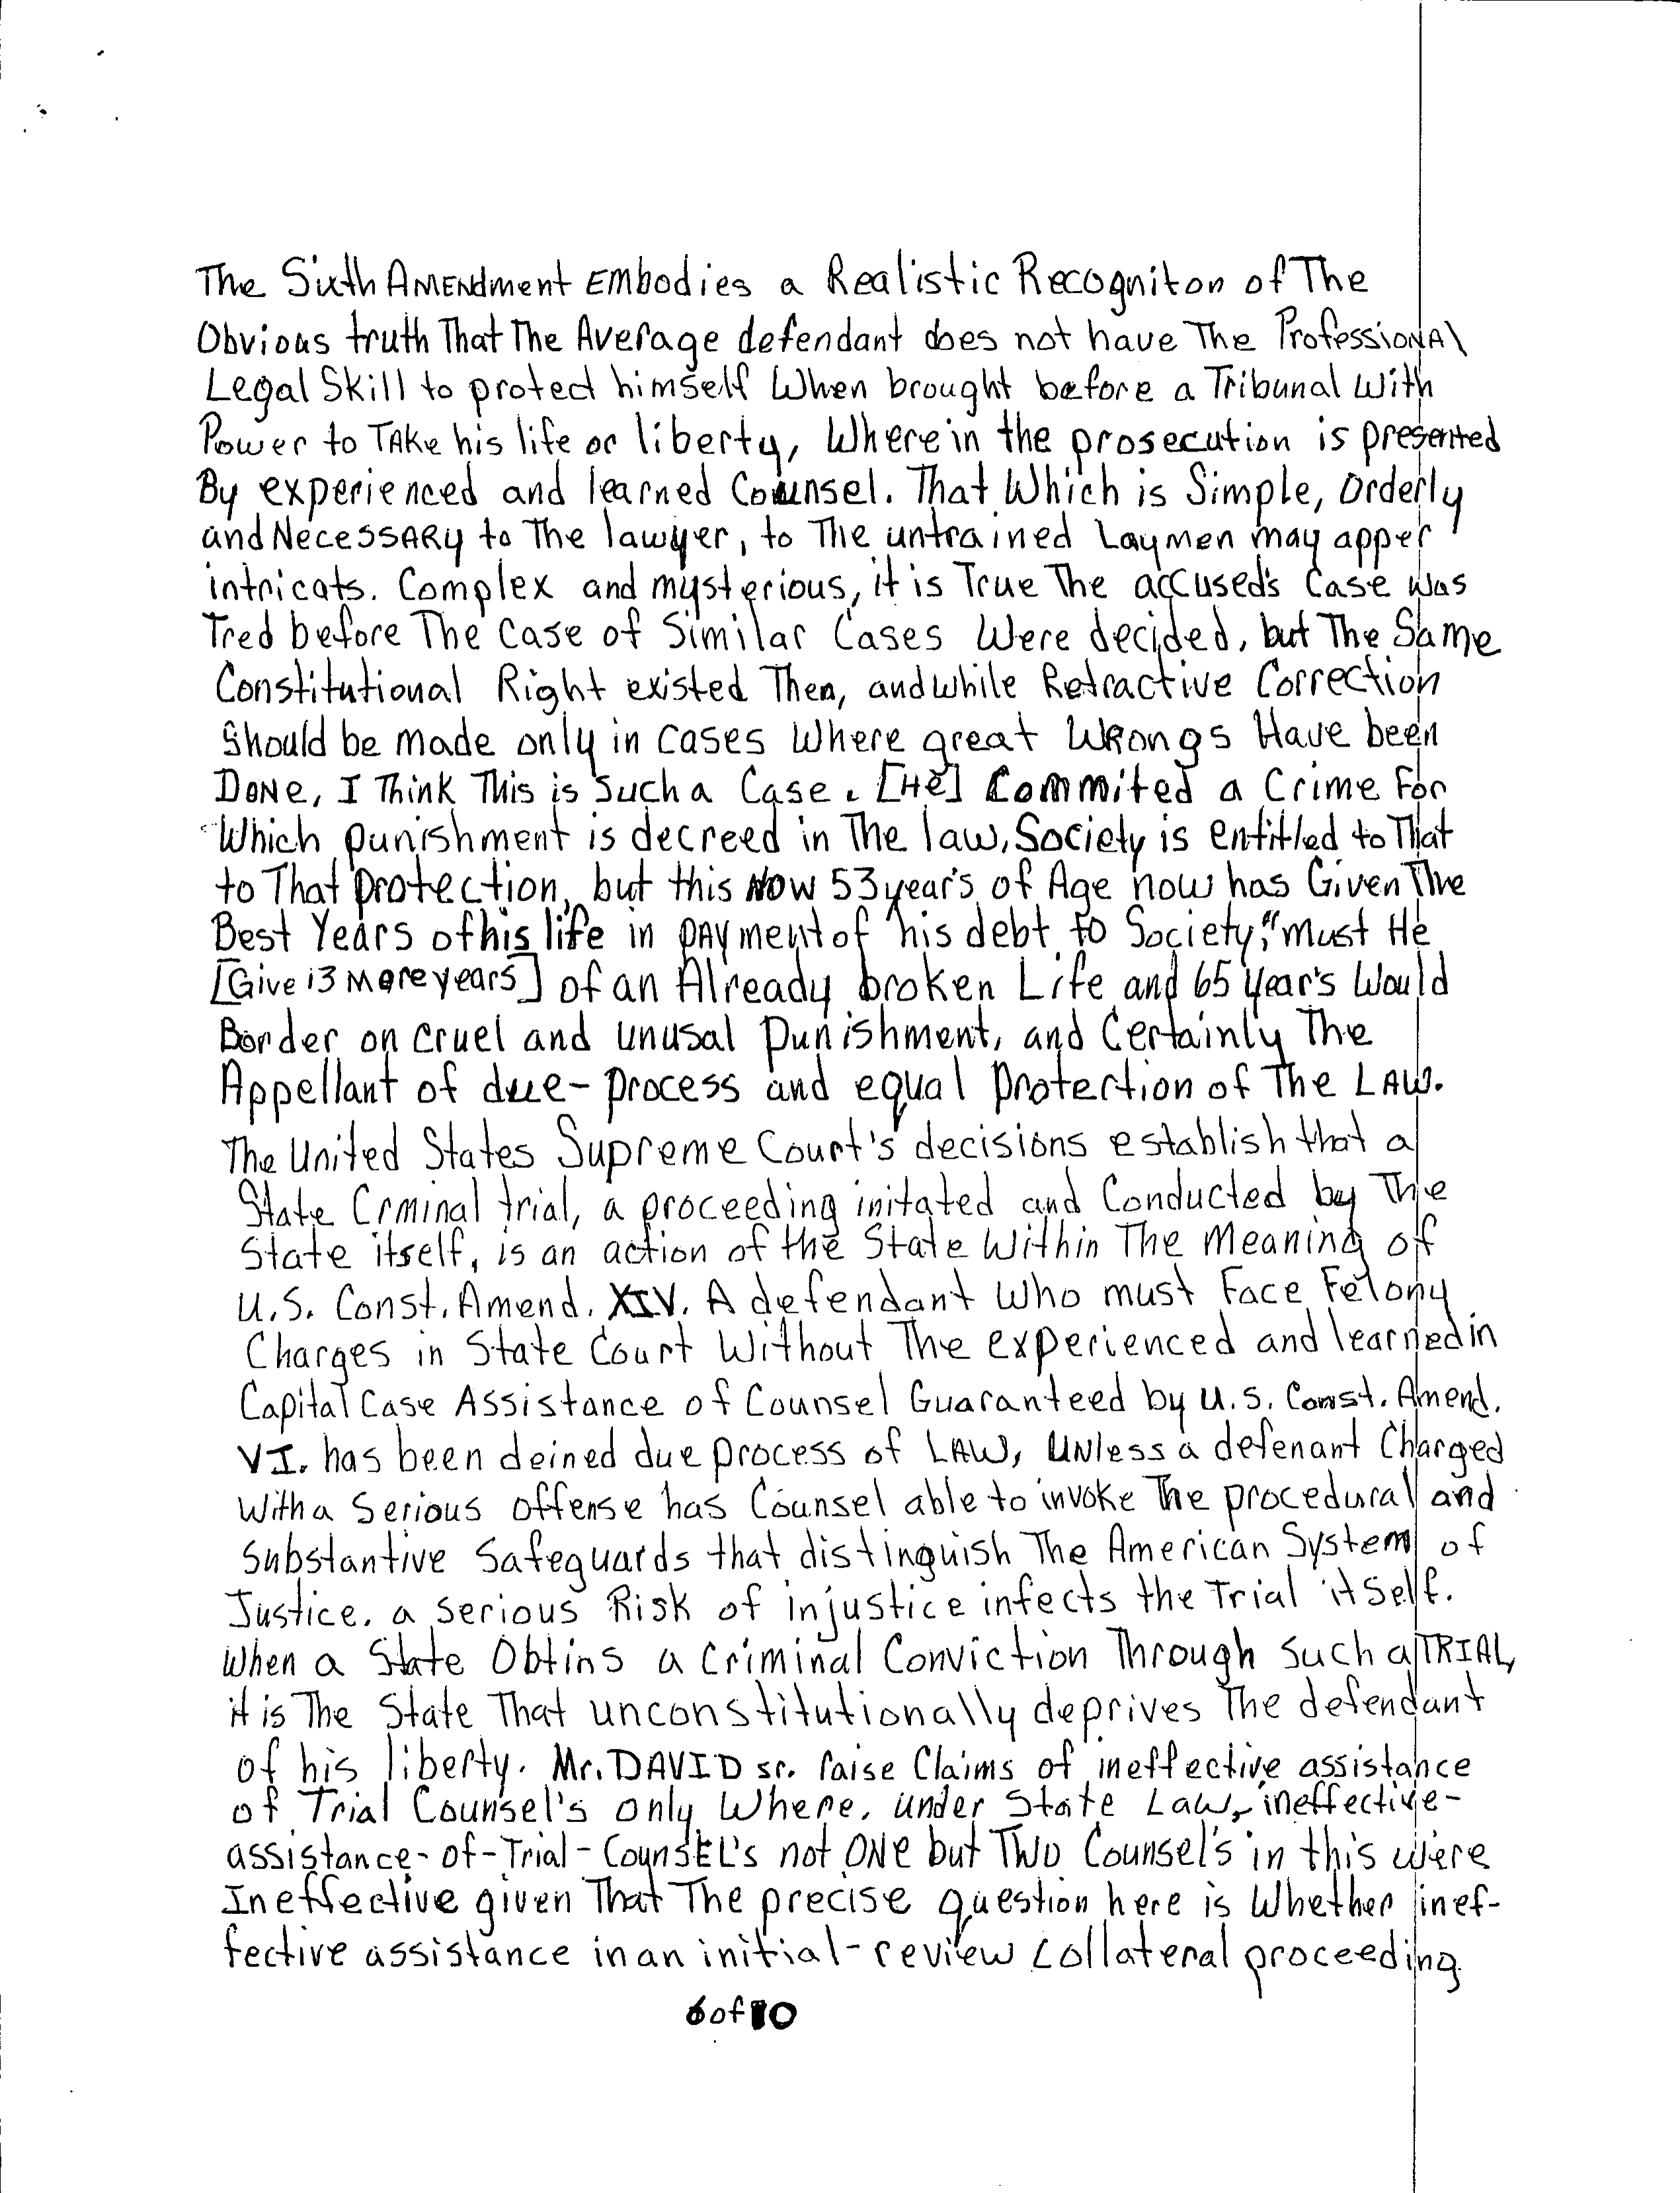 The Sixth AMENdment EMbodies a Realistic Recogniton of The
Obvious truth That The Average defendant does not have The ProfessioNAl
Legal Skill to protect himself When brought before a Tribunal With
Power to TAKe his life or liberty, Wherein the prosecution is presented
By experienced and learned Counsel. That Which is Simple, Orderly
and NecessARy to The lawyer, to The untrained Laymen may apper
intricats. Complex and mysterious, it is True The accused's Case was
Tred before The Case of Similar Cases Were decided, but The Same
Constitutional Right existed Then, and while Retractive Correction
Should be made only in Cases Where great WRongs Have been
DoNe, I Think This is Such a Case. [He] Commited a Crime For
Which punishment is decreed in The law, Society is entitled to That
to That protection, but this Now 53 year's of Age now has Given The
Best Years of his life in PAymentof his debt to Society," Must He
[Give 13 More years] of an Already broken Life and 65 Year's Would
Border on cruel and unusal Punishment, and Certainly The
Appellant of due-process and equal Protection of The LAW.
The United States Supreme Court's decisions establish that a
State Crminal trial, a proceeding initated and Conducted by The
State itself, is an action of the State Within The Meaning of
U.S. Const. Amend. XIV. A defendant Who must Face Felony
Charges in State Court Without The experienced and learned in
Capital Case Assistance of Counsel Guaranteed by U.S. Const. Amend.
VI. has been deined due process of LAW, UNless a defenant Charged
With a Serious offense has Counsel able to invoke The procedural and
Substantive Safeguards that distinguish The American System of
Justice. a serious Risk of injustice infects the Trial itself.
When a State Obtins a Criminal Conviction Through Such a TRIAL,
it is The State That unconstitutionally deprives The defendant
of his liberty. Mr. DAVID sr. raise Claims of ineffective assistance
of Trial Counsel's only Where, under State Law, ineffective-
assistance-of-Trial-CounsEL's not ONe but TWo Counsel's in this were
Ineffective given That The precise question here is Whether inef-
fective assistance in an initial-review Collateral proceeding
6 of 10